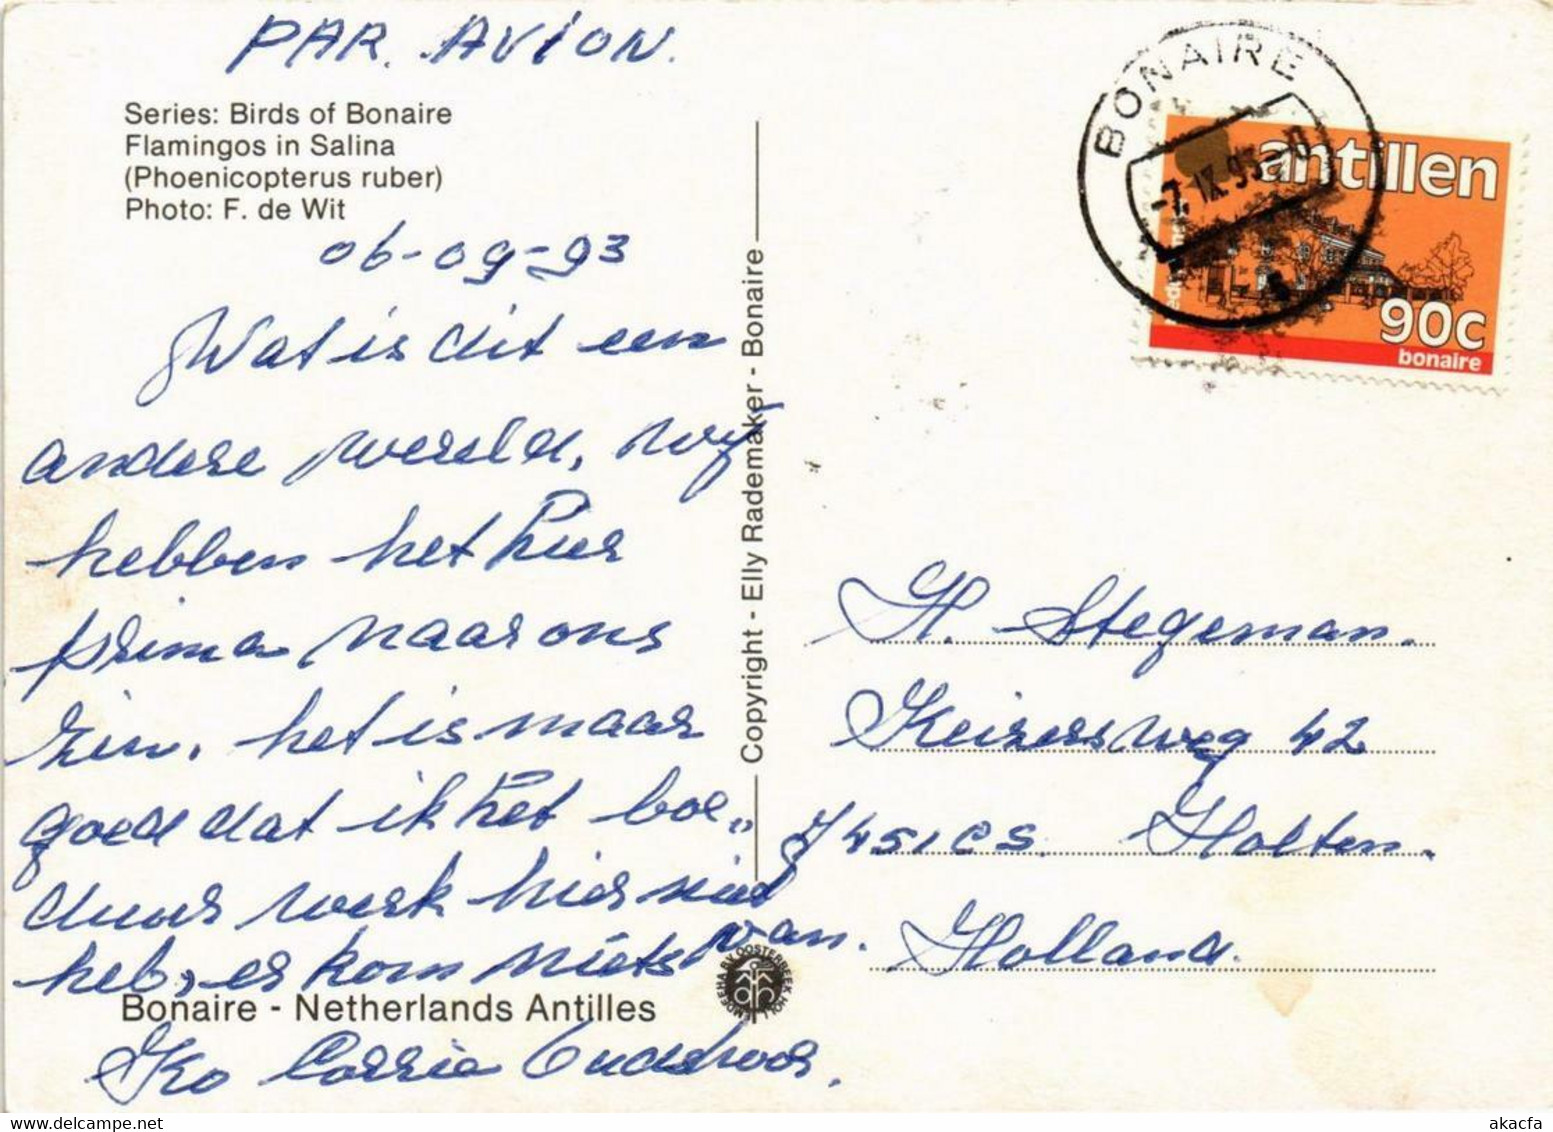 PAR. AVION.
Series: Birds of Bonaire
Flamingos in Salina
(Phoenicopterus ruber)
Photo: F. de Wit
06-09-93
Wat is dit een
andere wereld, wy
hebben het hier
prima naar ons
zin, het is maar
goed dat ik het boe„
duurs werk hier niet
heb, er kom niets van.
Bonaire - Netherlands Antilles
Ko Corrie
Copyright - Elly Rademaker - Bonaire
BONAIRE
-7. IX. 93
antillen
90c
bonaire
H. Stegeman.
Keizersweg 42
7451 CS. Holten.
Holland.
akacfa